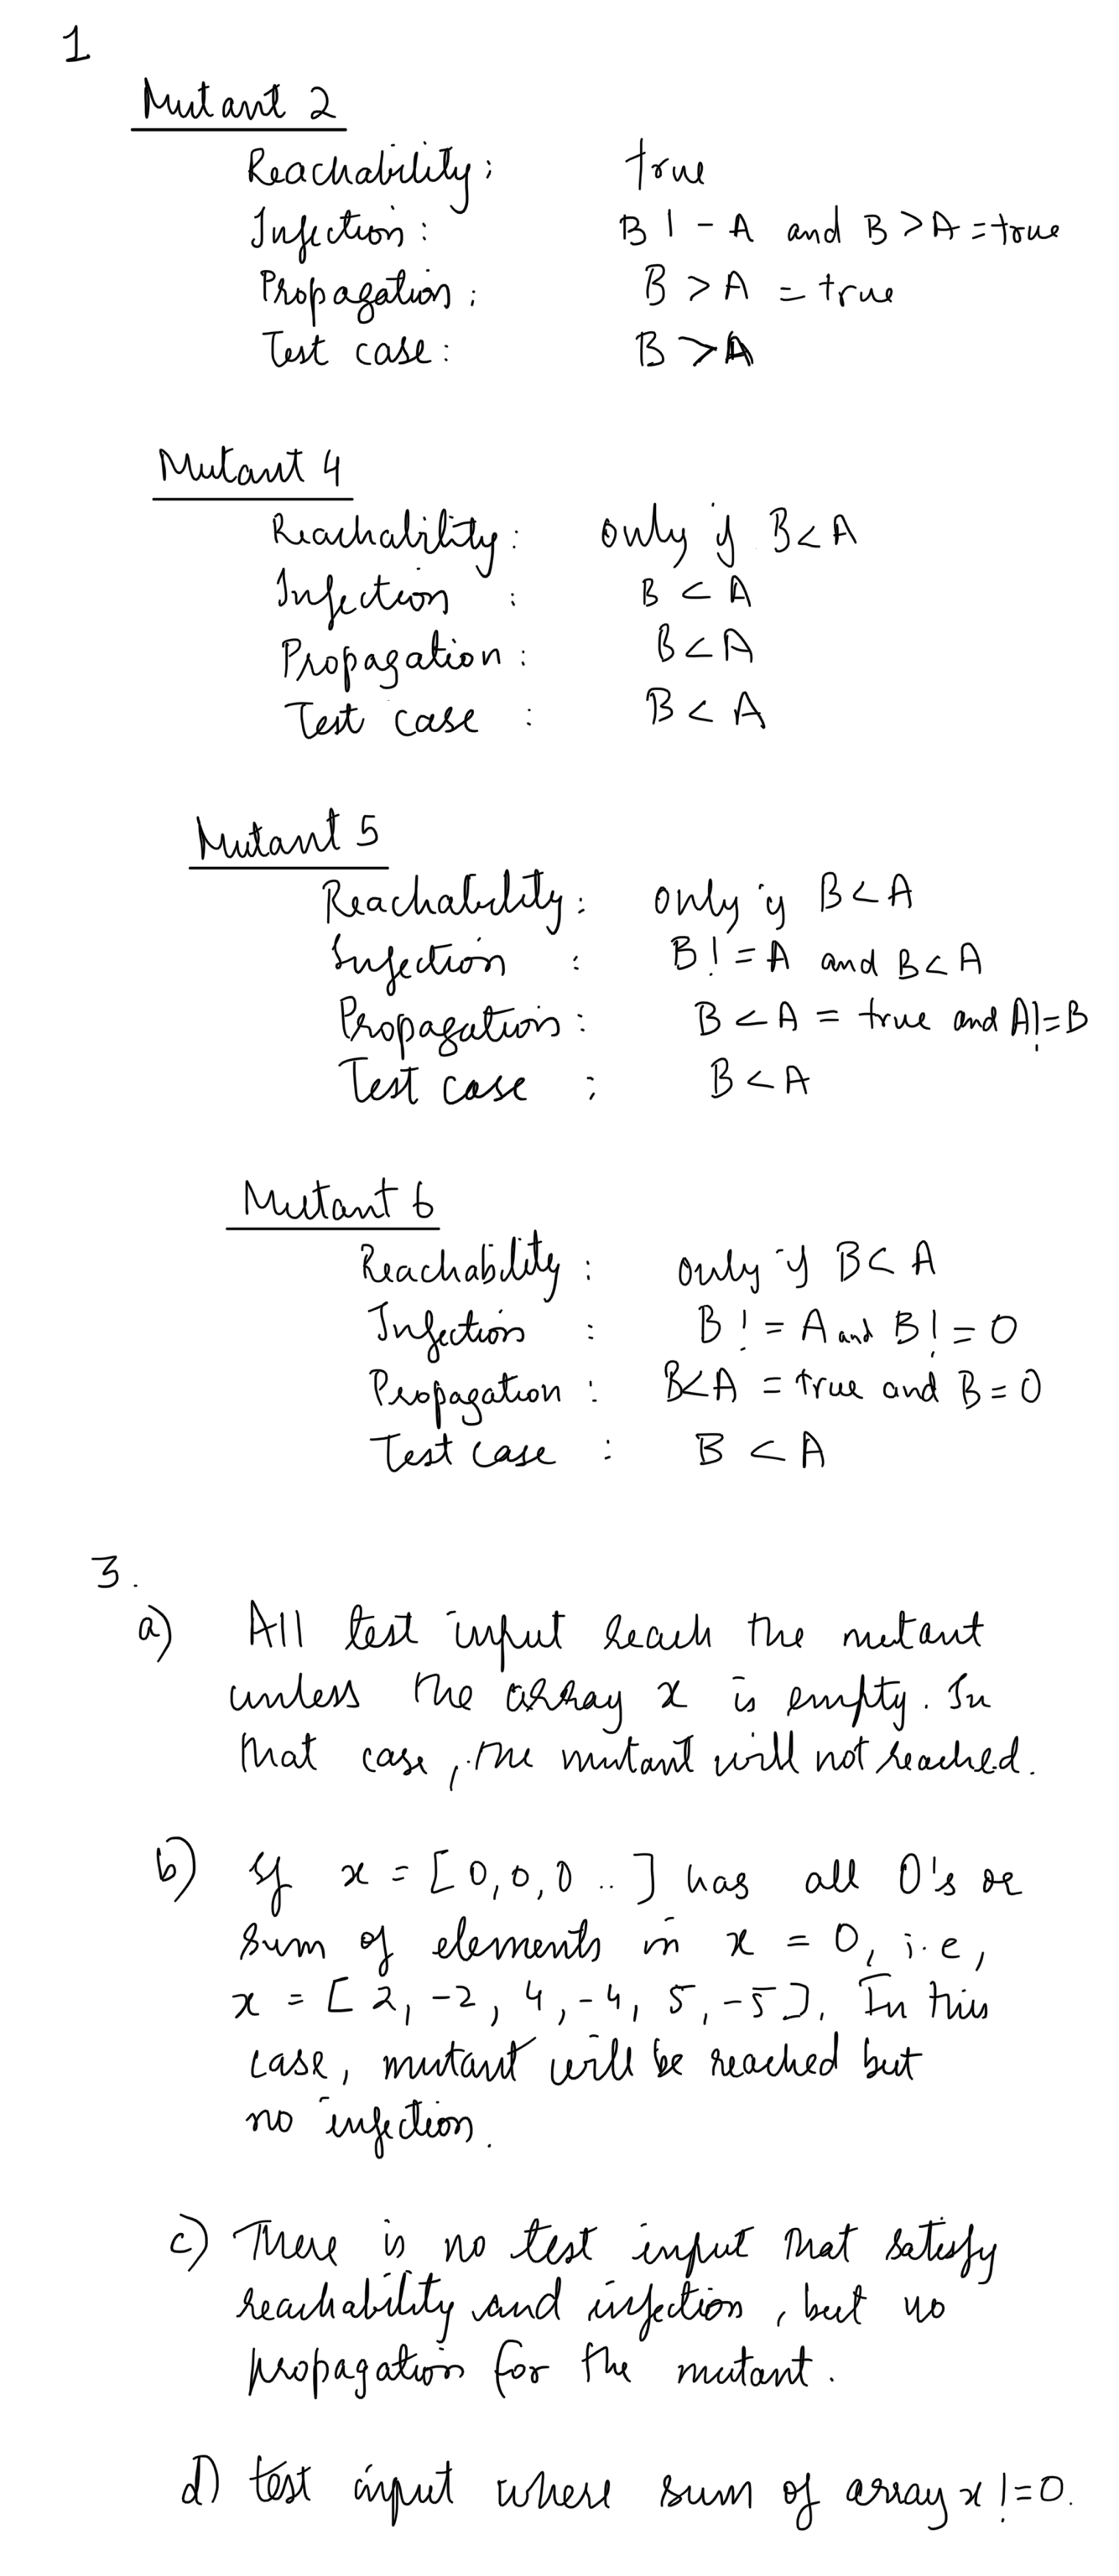 1
Mutant 2
Reachability: true
Infection: B ! - A and B > A = true
Propagation: B > A = true
Test case: B > A
Mutant 4
Reachability: only if B < A
Infection : B < A
Propagation: B < A
Test case : B < A
Mutant 5
Reachability: only if B < A
Infection : B ! = A and B < A
Propagation: B < A = true and A != B
Test case : B < A
Mutant 6
Reachability : only if B < A
Infection : B ! = A and B ! = 0
Propagation : B < A = true and B = 0
Test case : B < A
3.
a) All test input reach the mutant
unless the array x is empty. In
that case, the mutant will not reached.
b) If x = [ 0, 0, 0 .. ] has all 0's or
sum of elements in x = 0, i.e,
x = [ 2, -2, 4, -4, 5, -5 ]. In this
case, mutant will be reached but
no infection.
c) There is no test input that satisfy
reachability and infection, but no
propagation for the mutant.
d) test input where sum of array x != 0.